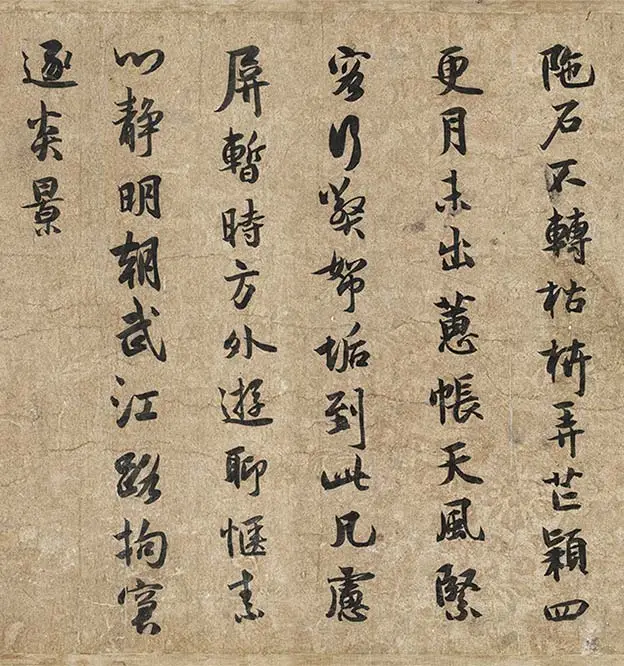 陁石不轉枯枿弄芒穎四
更月未出蕙帳天風緊
客行垢到此凡慮
屏暫時方外遊聊愜素
心静明朝武江路拘窘
逐炎景